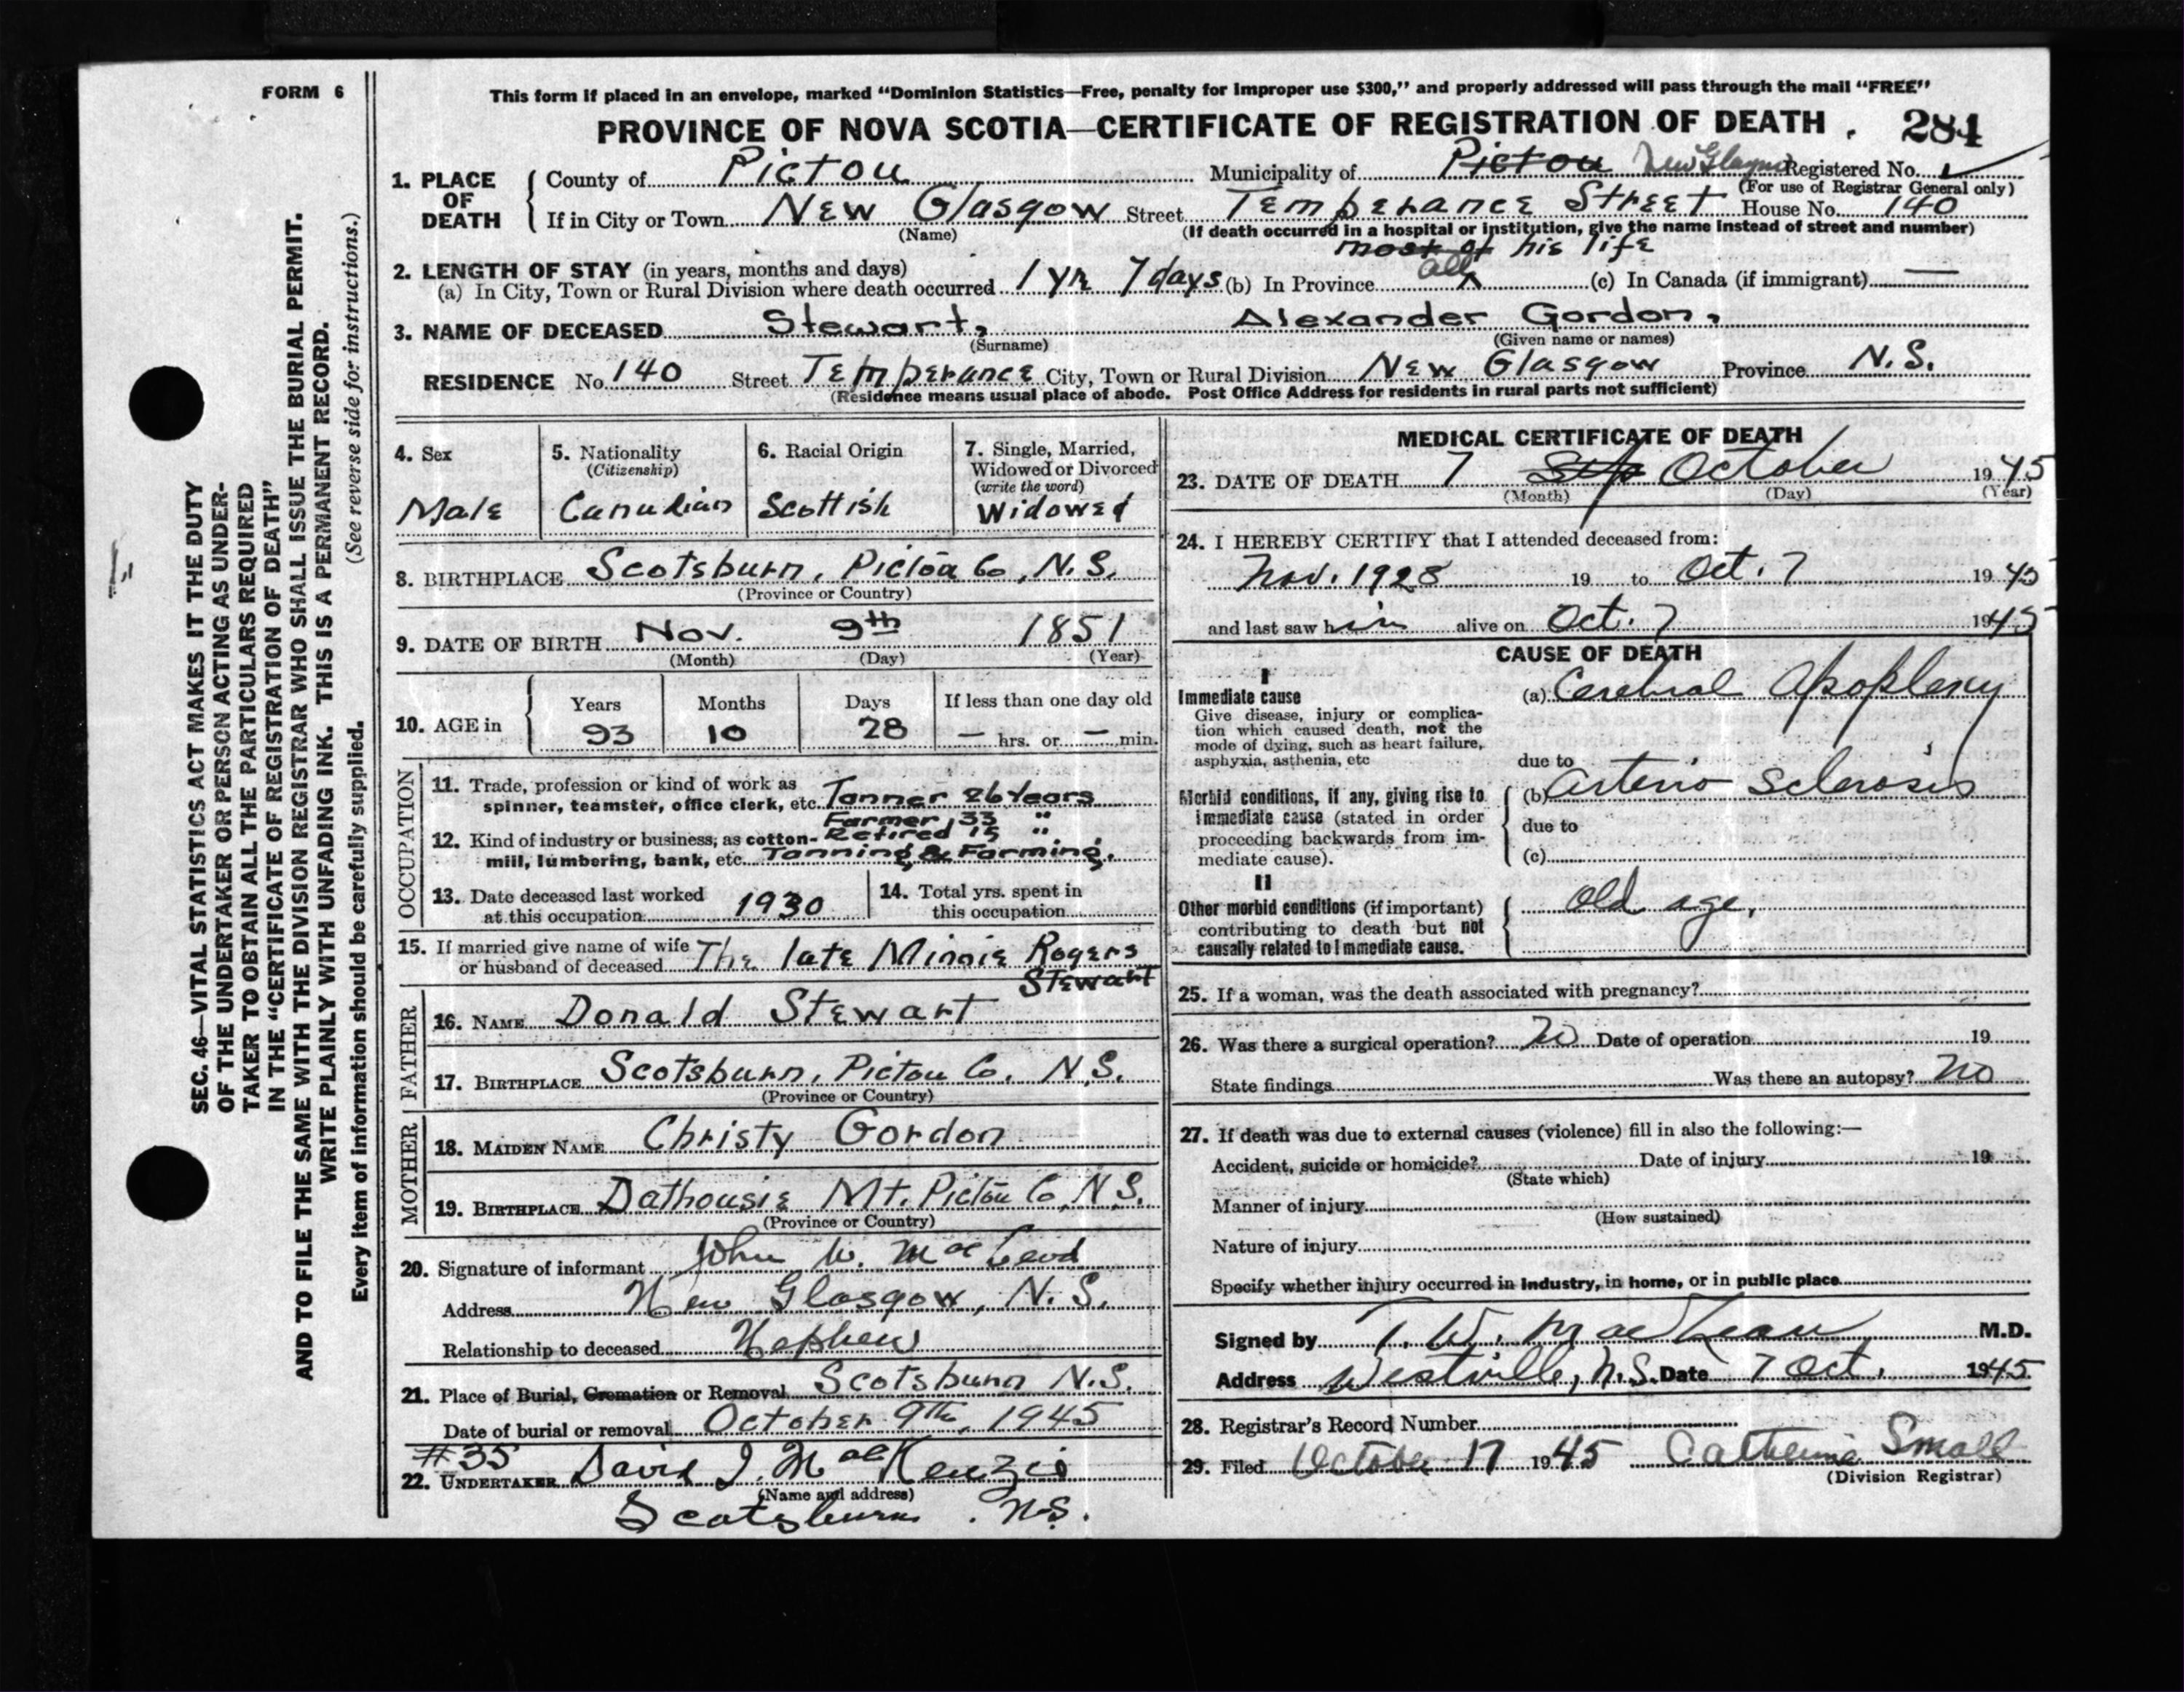 FORM 6
This form if placed in an envelope, marked “Dominion Statistics—Free, penalty for improper use $300,” and properly addressed will pass through the mail “FREE”
PROVINCE OF NOVA SCOTIA—CERTIFICATE OF REGISTRATION OF DEATH 284
SEC. 46—VITAL STATISTICS ACT MAKES IT THE DUTY
OF THE UNDERTAKER OR PERSON ACTING AS UNDER-
TAKER TO OBTAIN ALL THE PARTICULARS REQUIRED
IN THE “CERTIFICATE OF REGISTRATION OF DEATH”
AND TO FILE THE SAME WITH THE DIVISION REGISTRAR WHO SHALL ISSUE THE BURIAL PERMIT.
WRITE PLAINLY WITH UNFADING INK. THIS IS A PERMANENT RECORD.
Every item of information should be carefully supplied. (See reverse side for instructions.)
1. PLACE OF DEATH
County of Pictou Municipality of Pictou New Glasgow Registered No.
(For use of Registrar General only)
If in City or Town New Glasgow Street Temperance Street House No. 140
(Name) (If death occurred in a hospital or institution, give the name instead of street and number)
most of his life
2. LENGTH OF STAY (in years, months and days) all
(a) In City, Town or Rural Division where death occurred 1 yr 7 days (b) In Province ^ (c) In Canada (if immigrant) —
3. NAME OF DECEASED Stewart, Alexander Gordon,
(Surname) (Given name or names)
RESIDENCE No. 140 Street Temperance City, Town or Rural Division New Glasgow Province N.S.
(Residence means usual place of abode. Post Office Address for residents in rural parts not sufficient)
4. Sex
Male
5. Nationality
(Citizenship)
Canadian
6. Racial Origin
Scottish
7. Single, Married,
Widowed or Divorced
(write the word)
Widowed
8. BIRTHPLACE Scotsburn, Pictou Co, N.S.
(Province or Country)
9. DATE OF BIRTH Nov. 9th 1851
(Month) (Day) (Year)
10. AGE in
Years Months Days If less than one day old
93 10 28 — hrs. or — min.
OCCUPATION
11. Trade, profession or kind of work as
spinner, teamster, office clerk, etc. Tanner 26 Years
Farmer 33 "
12. Kind of industry or business, as cotton- Retired 15 "
mill, lumbering, bank, etc. Tanning & Farming.
13. Date deceased last worked
at this occupation 1930
14. Total yrs. spent in
this occupation
15. If married give name of wife
or husband of deceased The late Minnie Rogers
Stewart
FATHER
16. NAME Donald Stewart
17. BIRTHPLACE Scotsburn, Pictou Co. N.S.
(Province or Country)
MOTHER
18. MAIDEN NAME Christy Gordon
19. BIRTHPLACE Dalhousie Mt. Pictou Co, N.S.
(Province or Country)
20. Signature of informant John W. MacLeod
Address New Glasgow, N.S.
Relationship to deceased Nephew
21. Place of Burial, Cremation or Removal Scotsburn N.S.
Date of burial or removal October 9th, 1945
#35
22. UNDERTAKER David J. MacKenzie
(Name and address)
Scotsburn. N.S.
MEDICAL CERTIFICATE OF DEATH
23. DATE OF DEATH 7 Sep October 1945
(Month) (Day) (Year)
24. I HEREBY CERTIFY that I attended deceased from:
Nov. 1928 19 to Oct. 7 1945
and last saw him alive on Oct. 7 1945
CAUSE OF DEATH
I
Immediate cause (a) Cerebral Apoplexy
Give disease, injury or complica-
tion which caused death, not the
mode of dying, such as heart failure,
asphyxia, asthenia, etc due to
Morbid conditions, if any, giving rise to (b) Arterio Sclerosis
immediate cause (stated in order due to
proceeding backwards from im-
mediate cause). (c)
II
Other morbid conditions (if important) Old age,
contributing to death but not
causally related to immediate cause.
25. If a woman, was the death associated with pregnancy?
26. Was there a surgical operation? No Date of operation 19
State findings Was there an autopsy? No
27. If death was due to external causes (violence) fill in also the following:—
Accident, suicide or homicide? Date of injury 19
(State which)
Manner of injury
(How sustained)
Nature of injury
Specify whether injury occurred in industry, in home, or in public place
Signed by T. W. MacLean M.D.
Address Westville, N.S. Date 7 Oct. 1945
28. Registrar’s Record Number
29. Filed October 17 1945 Catherine Small
(Division Registrar)